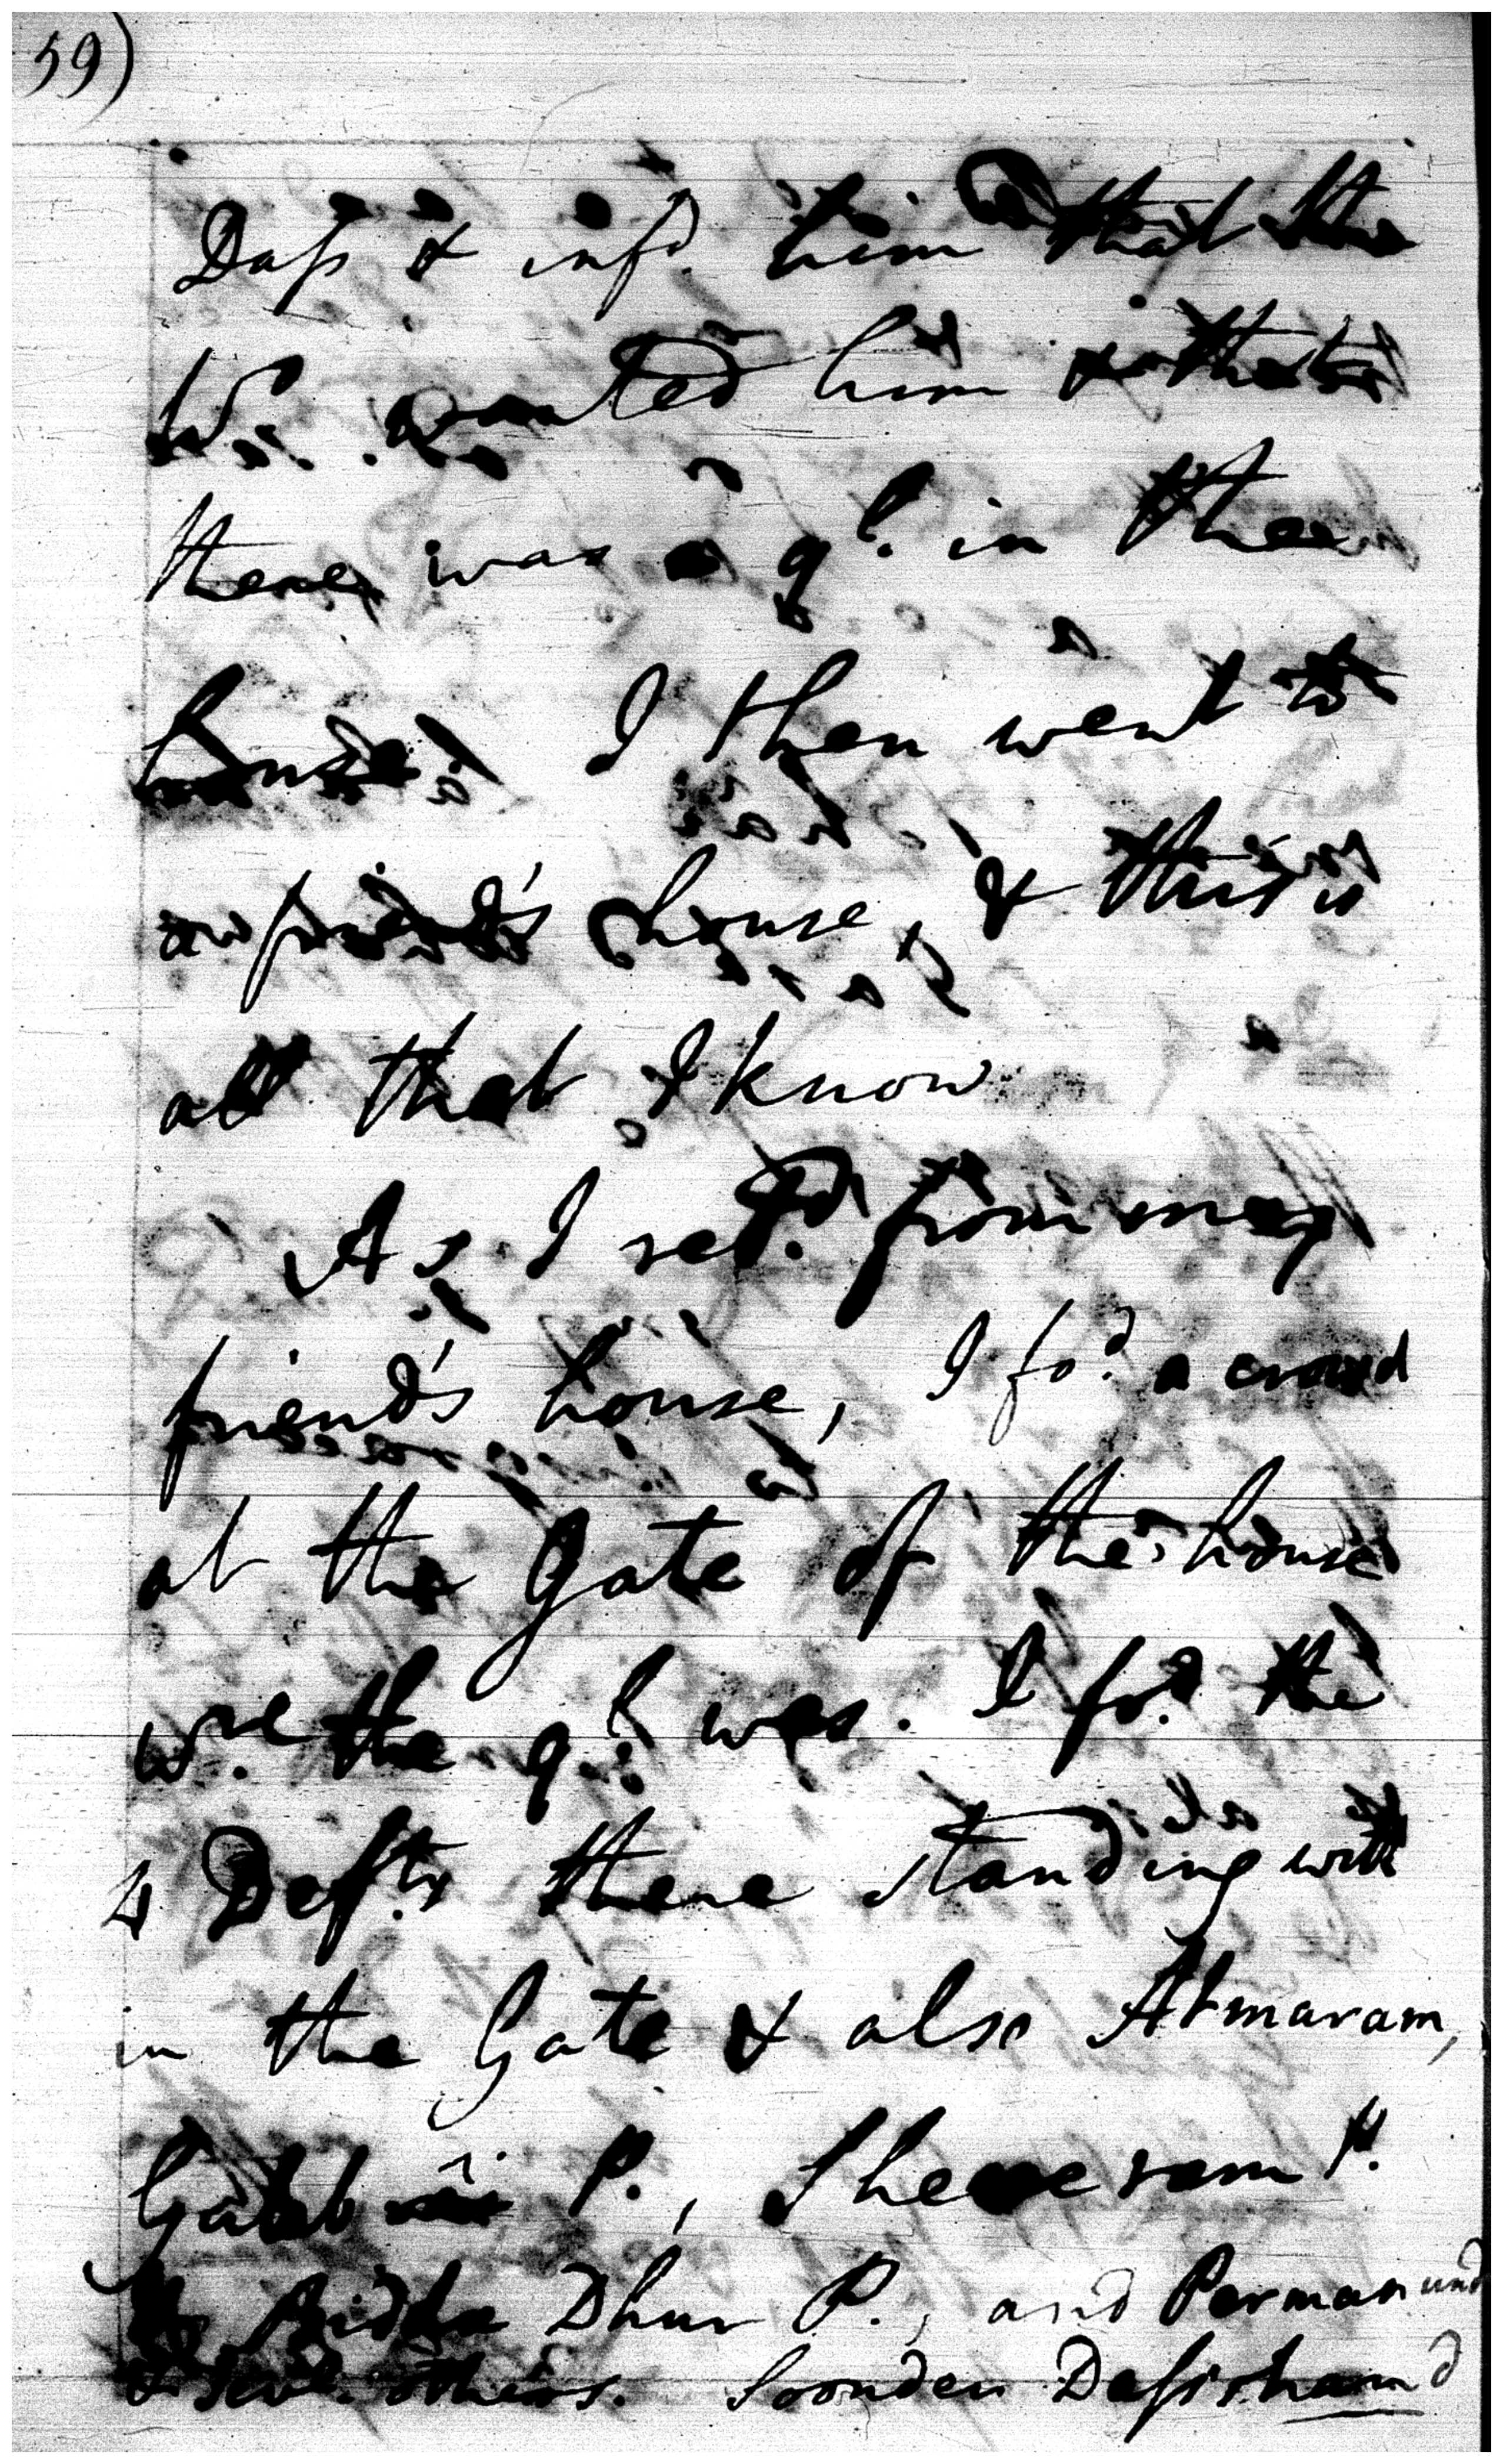 59)
Dass & infd. him that the
Wn. wanted him & that
there was a ql. in the
house. I then went to
a friend's house, & this is
all that I know
As I retd. from my
friend's house, I fod. a crowd
at the Gate of the house
wre. the ql. was. I fod. the
4 Defts. there standing with
in the Gate & also Atmaram,
P., Sheeram P.
Bidda Dhur P., and Permanund
& sevl. others. Soonder Dass's hand